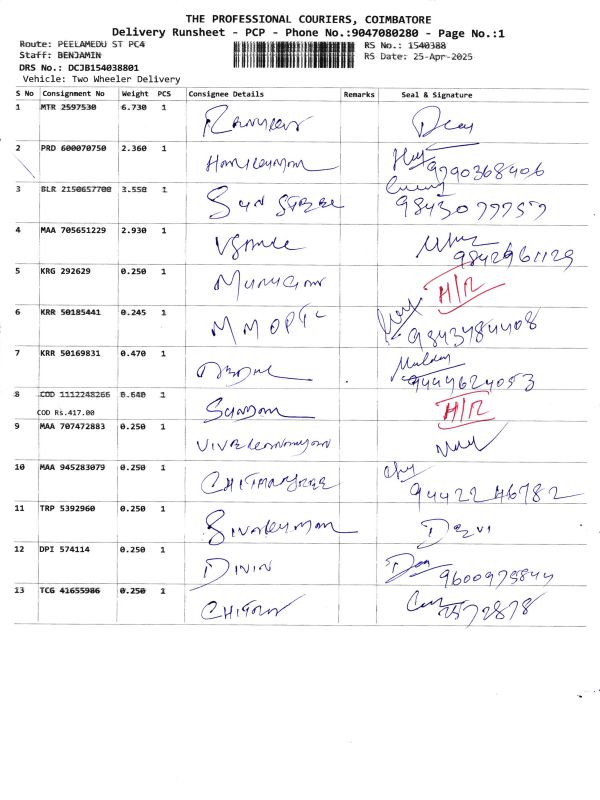 THE PROFESSIONAL COURIERS, COIMBATORE
Delivery Runsheet - PCP - Phone No.:9047080280 - Page No.:1
Route: PEELAMEDU ST PC4 RS No.: 1540388
Staff: BENJAMIN RS Date: 25-Apr-2025
DRS No.: DCJB154038801
Vehicle: Two Wheeler Delivery
S No Consignment No Weight PCS Consignee Details Remarks Seal & Signature
1 MTR 2597530 6.730 1
2 PRD 600070750 2.360 1 9790368406
3 BLR 2150657700 3.550 1 SUN STEEL 9843077757
4 MAA 705651229 2.930 1 9842961129
5 KRG 292629 0.250 1 MURUGAN H/R
6 KRR 50185441 0.245 1 M M OPTC 9843484408
7 KRR 50169831 0.470 1 9444624053
8 COD 1112248266 0.640 1 H/R
COD Rs.417.00
9 MAA 707472883 0.250 1
10 MAA 945283079 0.250 1 94422 46782
11 TRP 5392960 0.250 1 SIVAKUMAR DEVI
12 DPI 574114 0.250 1 DIVIN 9600975844
13 TCG 41655986 0.250 1 2572878